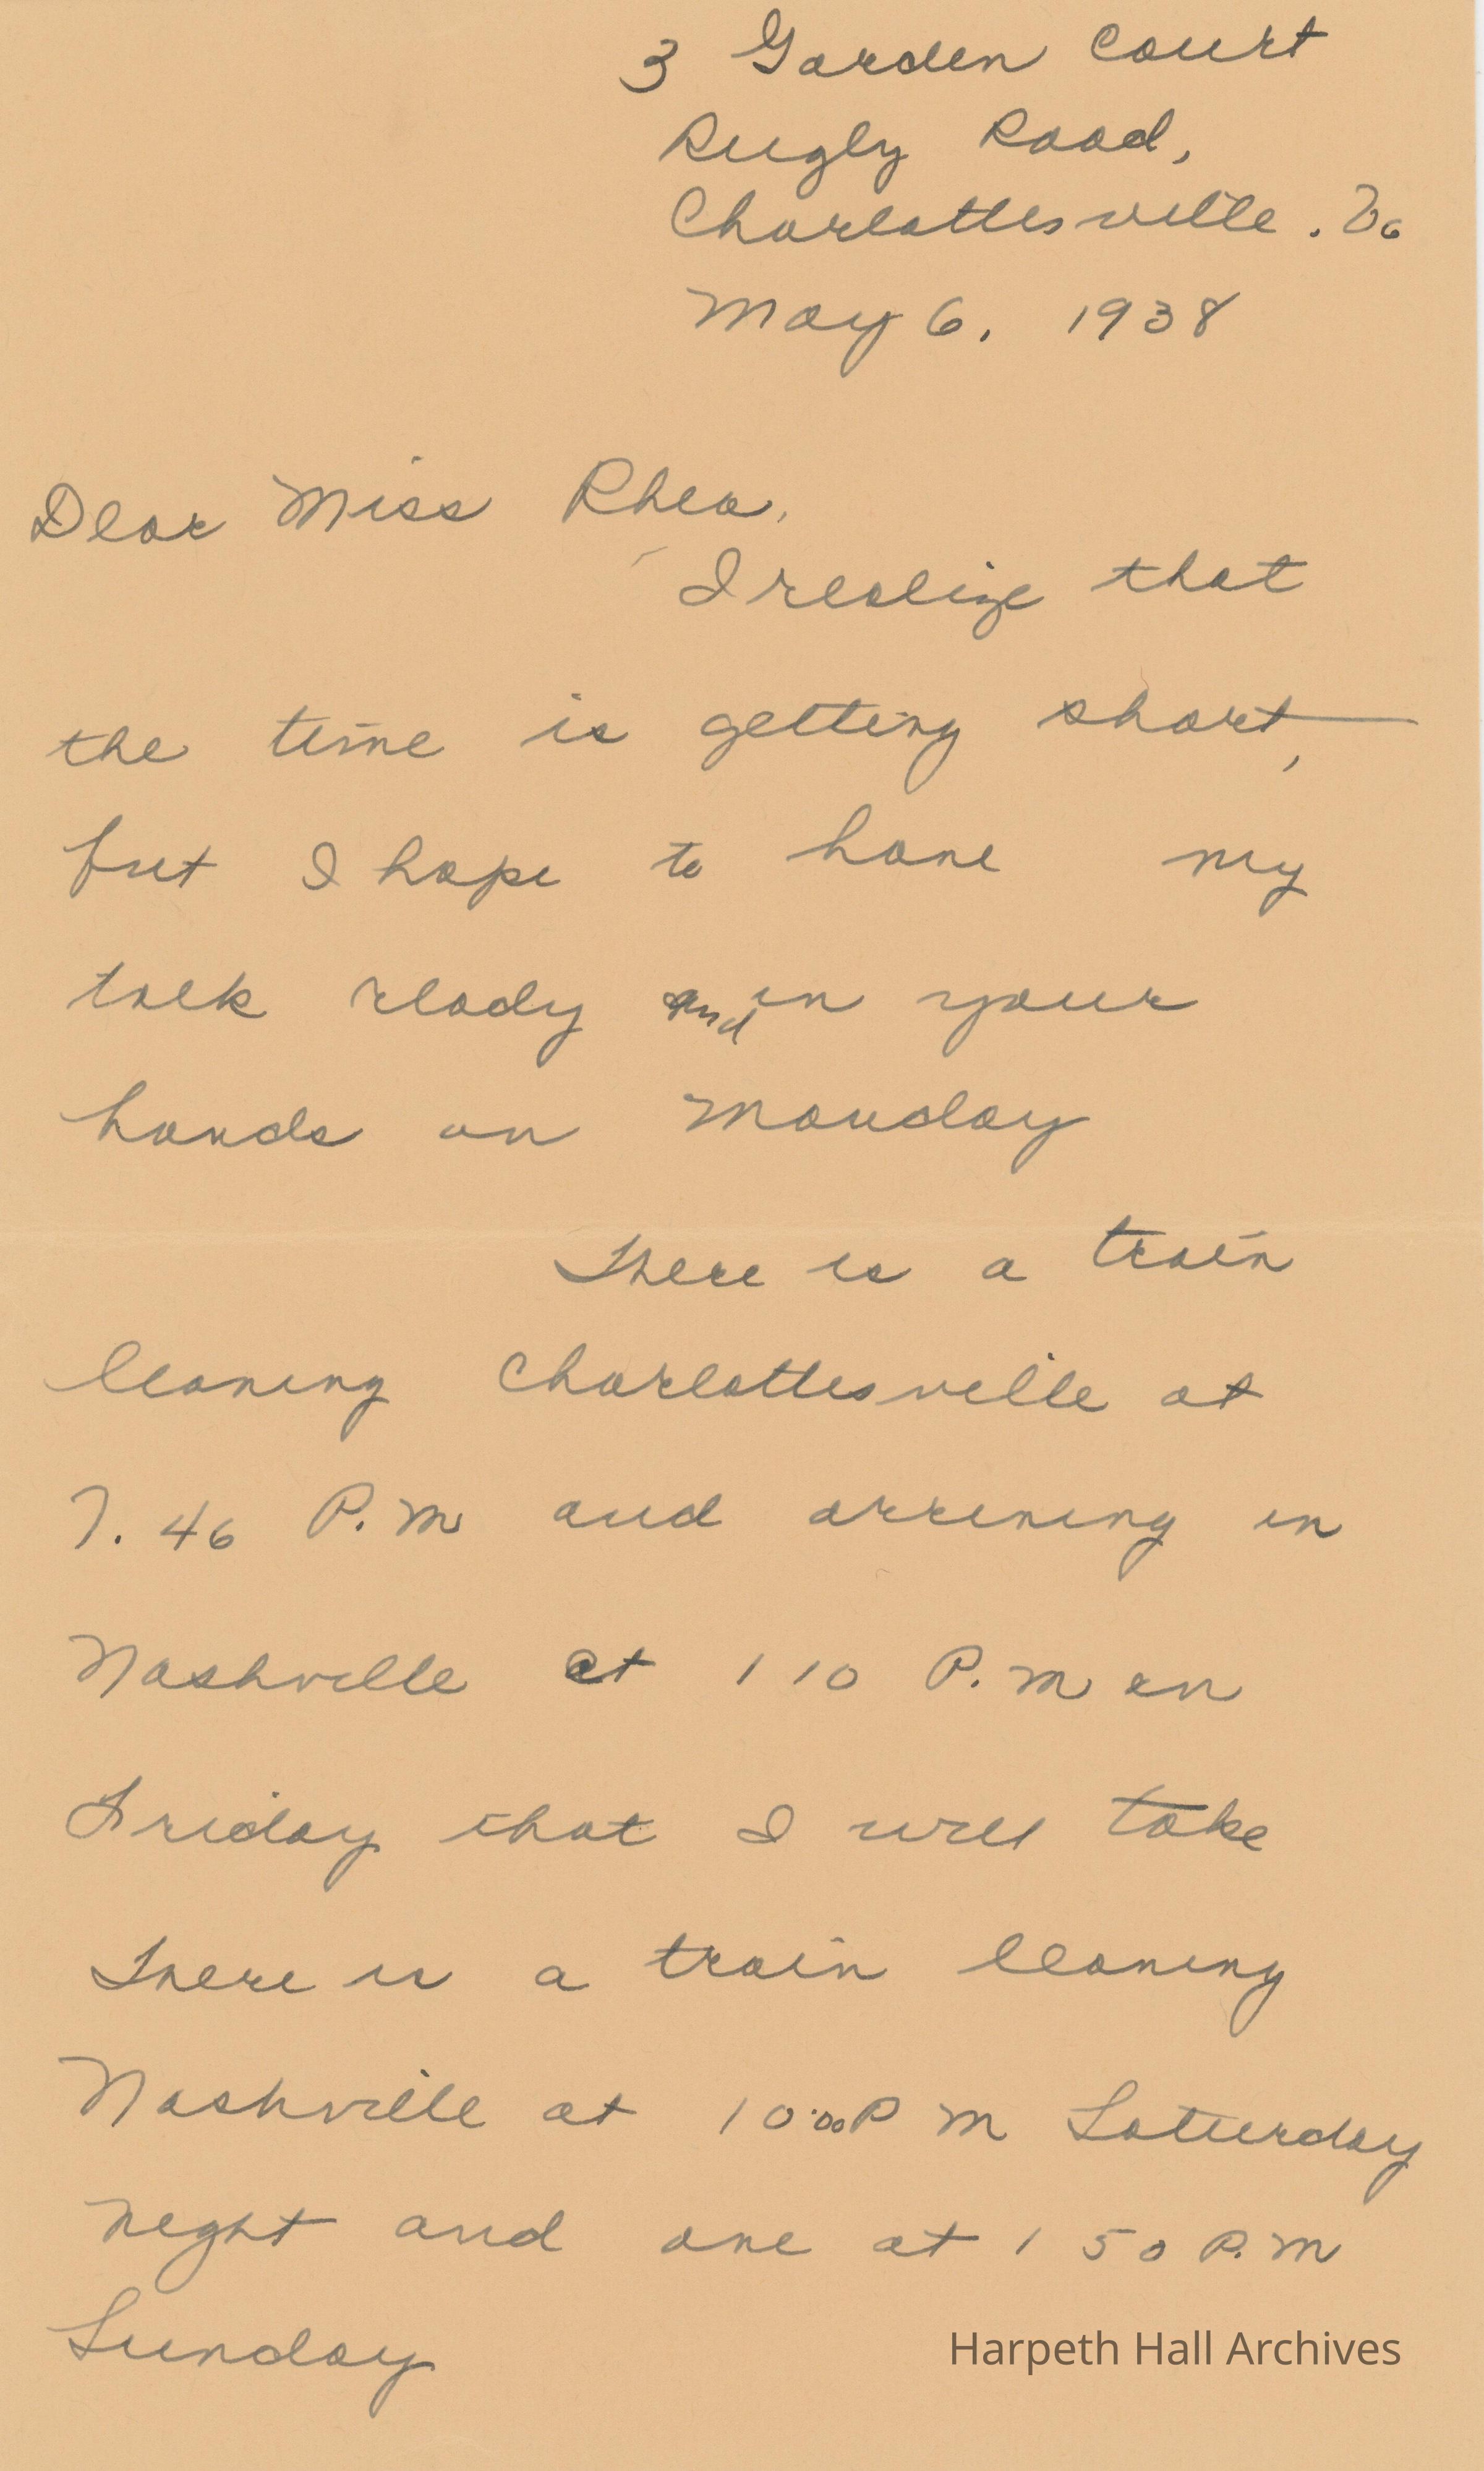 3 Garden Court
Rugby Road,
Charlottesville. Va
May 6, 1938
Dear Miss Rhea,
I realize that
the time is getting short,
but I hope to have my
talk ready and in your
hands on Monday
There is a train
leaving Charlottesville at
7.46 P.M and arriving in
Nashville at 1 10 P.M on
Friday that I will take
There is a train leaving
Nashville at 10:00 P M Saturday
night and one at 1 50 P.M
Sunday
Harpeth Hall Archives